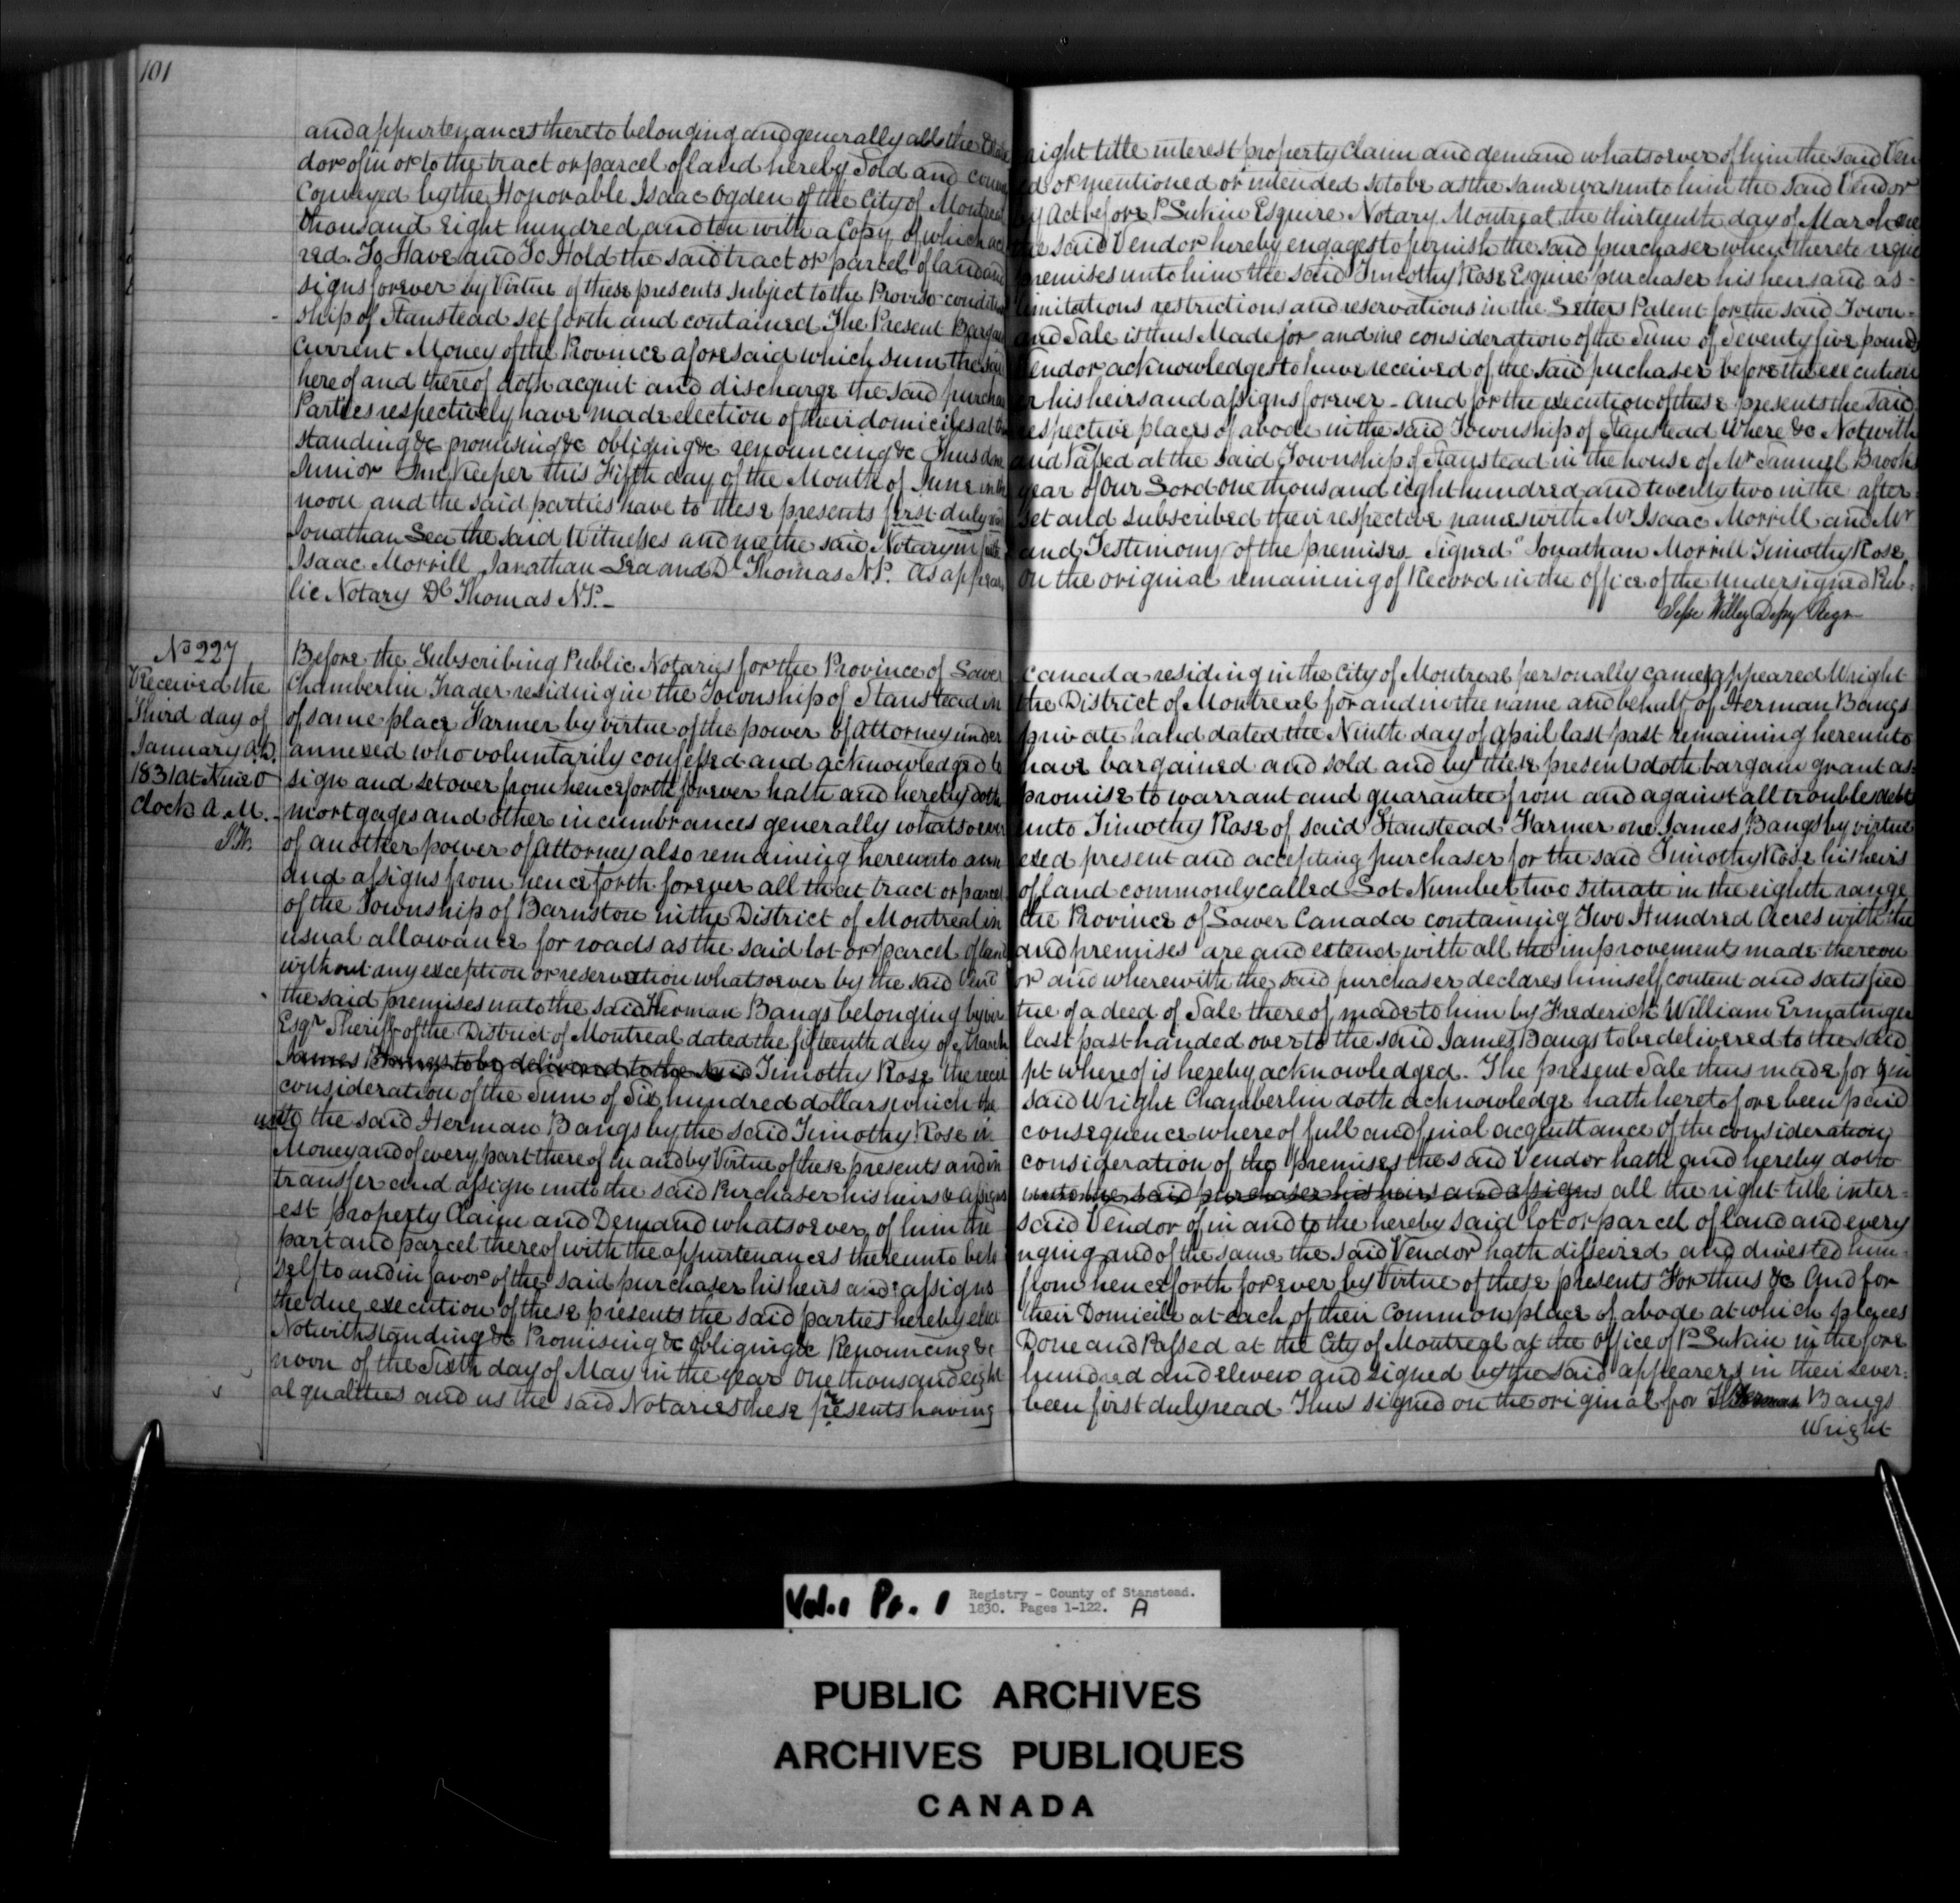 101
and appurtenances thereto belonging and generally all the Estate right title interest property Claim and demand whatsoever of him the said Ven
dor of in or to the tract or parcel of land hereby Sold and convey ed or mentioned or intended so to be as the same was unto him the said Vendor
Conveyed by the Honorable Isaac Ogden of the City of Montreal by Act before P Lukin Esquire Notary Montreal the thirteenth day of March one
thousand Eight hundred and ten with a Copy of which act the said Vendor hereby engages to furnish the said purchaser when thereto requi
red. To Have and To Hold the said tract or parcel of land and premises unto him the said Timothy Rose Esquire purchaser his heirs and as-
signs forever by Virtue of these presents subject to the Proviso conditions limitations restrictions and reservations in the Letters Patent for the said Town-
ship of Stanstead set forth and contained The Present Bargain and Sale is thus Made for and in consideration of the Sum of Seventy five pounds
Current Money of the Province aforesaid which sum the said Vendor acknowledges to have received of the said puchaser before the execution
hereof and thereof doth acquit and discharge the said purchas er his heirs and assigns forever - And for the execution of these presents the said
Parties respectively have made election of their domiciles at the respective places of abode in the said Township of Stanstead Where &c Notwith
standing &c promising &c obliging &c renouncing &c Thus done and Passed at the said Township of Stanstead in the house of Mr Samuel Brooks
Junior Inn Keeper this Fifth day of the Month of June in the year of Our Lord one thousand eight hundred and twenty two in the after-
noon and the said parties have to these presents first duly read set and subscribed their respective names with Mr Isaac Morrill and Mr
Jonathan Lea the said Witnesses and me the said Notary in faith and Testimony of the premises Signed " Jonathan Morrill Timothy Rose
Isaac Morrill Janathan Lea and Dl Thomas N.P. As appears on the original remaining of Record in the office of the Undersigned Pub-
lic Notary Dl Thomas N.P.-
Jesse Willey Depy Regr
No 227
Received the
Third day of
January A.D.
1831 at Nine O
clock A.M. -
Before the Subscribing Public Notaries for the Province of Lower Canada residing in the City of Montreal personally came & appeared Wright
Chamberlin Trader residing in the Township of Stanstead in the District of Montreal for and in the name and behalf of Herman Bangs
of same place Farmer by virtue of the power of Attorney under private hand dated the Ninth day of April last past remaining hereunto
annexed who voluntarily confessed and acknowledged to have bargained and sold and by these present doth bargain grant as-
sign and set over from henceforth forever hath and hereby doth promise to warrant and guarantee from and against all troubles debt
mortgages and other incumbrances generally whatsoever unto Timothy Rose of said Stanstead Farmer one James Bangs by virtue
of another power of Attorney also remaining hereunto ann exed present and accepting purchaser for the said Timothy Rose his heirs
and assigns from henceforth forever all that tract or parcel of land commonly called Lot Number two situate in the eighth range
of the Township of Barnston in the District of Montreal in the Province of Lower Canada containing Two Hundred Acres with the
usual allowance for roads as the said lot or parcel of land and premises are and extend with all the improvements made thereon
without any exception or reservation whatsoever by the said Vend or and wherewith the said purchaser declares himself content and satisfied
the said premises unto the said Herman Bangs belonging by vir tue of a deed of Sale thereof made to him by Frederick William Ermatinger
Esqr Sheriff of the District of Montreal dated the fifteenth day of March last past handed over to the said James Bangs to be delivered to the said
James Bangs to be delivered to the said Timothy Rose the recei pt whereof is hereby acknowledged. The present Sale thus made for & in
consideration of the Sum of Six hundred dollars which the said Wright Chamberlin doth acknowledge hath heretofore been paid
unto the said Herman Bangs by the said Timothy Rose in consequence whereof full and final acquittance of the consideration
Money and of every part thereof in and by Virtue of these presents and in consideration of the premises the said Vendor hath and hereby doth
transfer and assign unto the said Purchaser his heirs & assigns unto the said purchaser his heirs and assigns all the right title inter-
est property Claim and Demand whatsoever of him the said Vendor of in and to the hereby said lot or parcel of land and every
part and parcel thereof with the appurtenances thereunto belo nging and of the same the said Vendor hath disseized and divested him-
self to and in favor of the said purchaser his heirs and assigns from henceforth forever by Virtue of these presents For thus &c And for
the due execution of these presents the said parties hereby elect their Domicile at each of their Common place of abode at which places
Notwithstanding &c Promising &c Obliging &c Renouncing &c Done and Passed at the City of Montreal at the Office of P Lukin in the fore
noon of the Sixth day of May in the year One thousand eight hundred and eleven and signed by the said appearers in their sever-
al qualities and us the said Notaries these presents having been first duly read Thus signed on the original for Herman Bangs
Wright
Vol.1 Pr. 1
Registry - County of Stanstead.
1830. Pages 1-122. A
PUBLIC ARCHIVES
ARCHIVES PUBLIQUES
CANADA